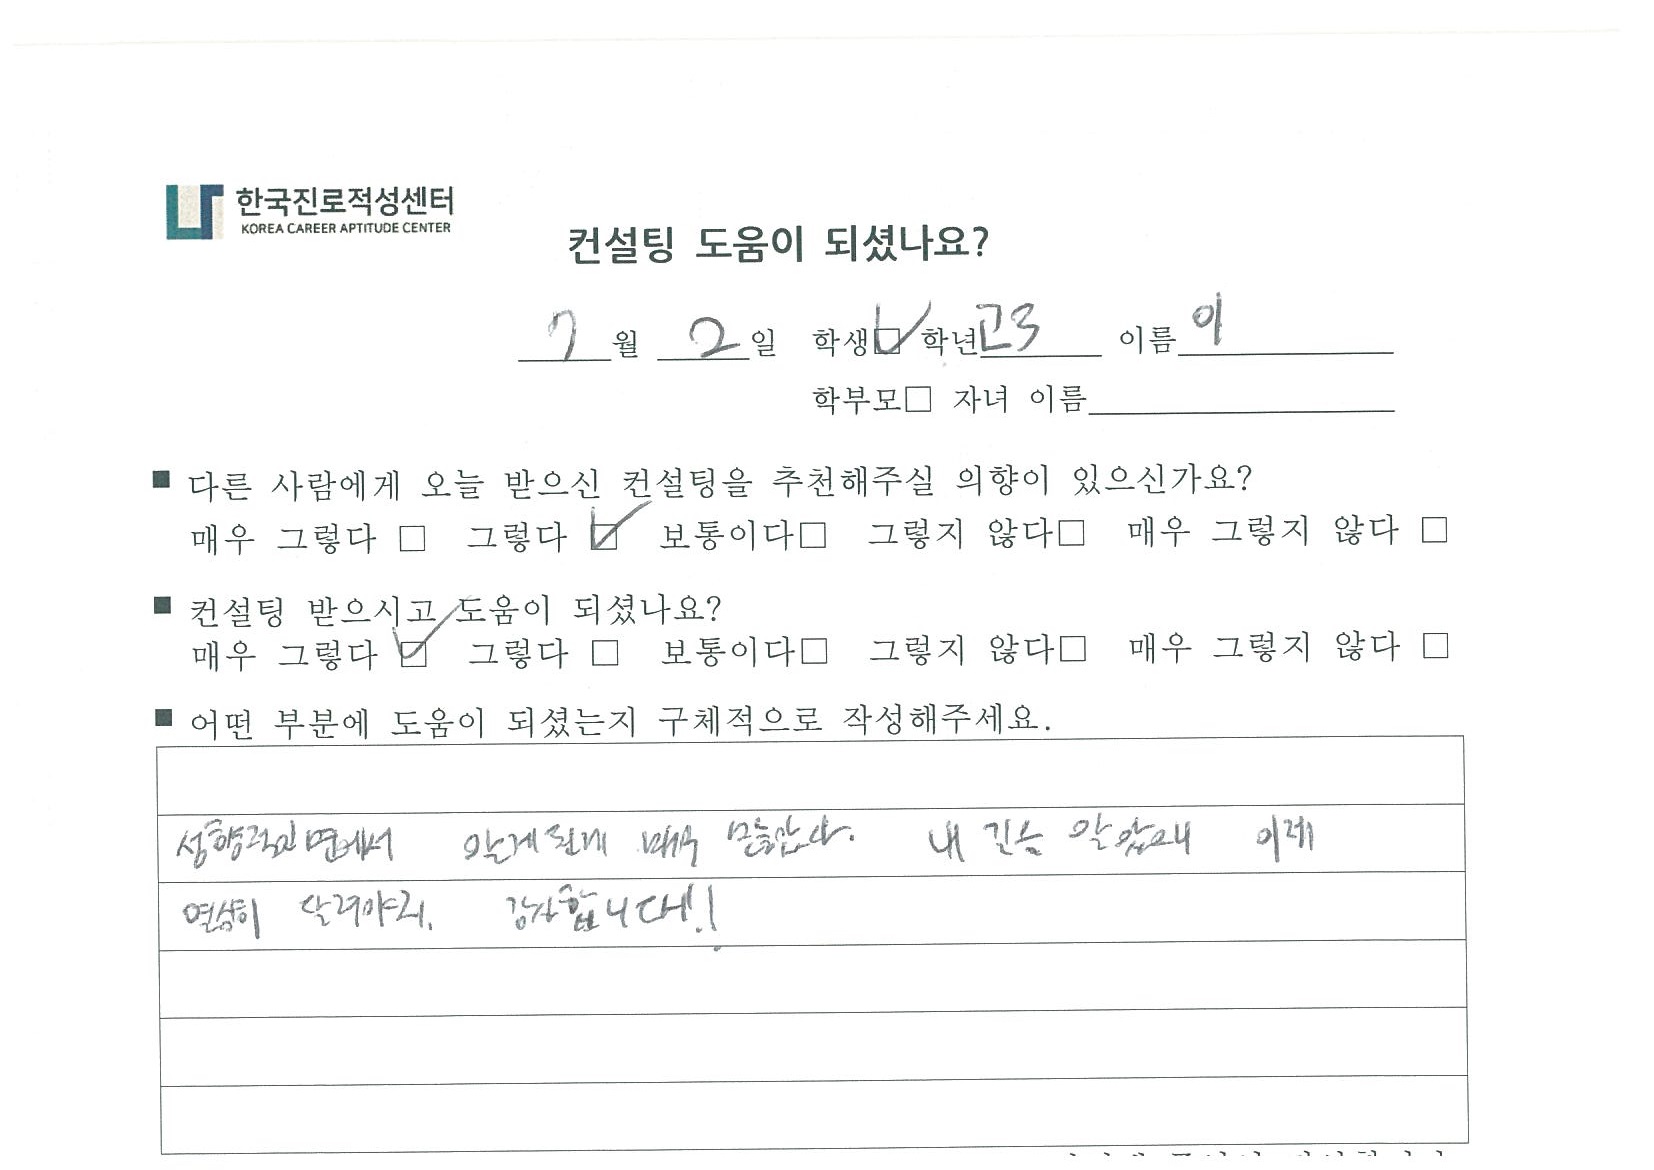 한국진로적성센터
KOREA CAREER APTITUDE CENTER
컨설팅 도움이 되셨나요?
7월 2일 학생□ 학년 고3 이름 이
학부모□ 자녀 이름
■ 다른 사람에게 오늘 받으신 컨설팅을 추천해주실 의향이 있으신가요?
매우 그렇다 □ 그렇다 ☑ 보통이다□ 그렇지 않다□ 매우 그렇지 않다 □
■ 컨설팅 받으시고 도움이 되셨나요?
매우 그렇다 ☑ 그렇다 □ 보통이다□ 그렇지 않다□ 매우 그렇지 않다 □
■ 어떤 부분에 도움이 되셨는지 구체적으로 작성해주세요.
성향적인 면에서 알게된게 매우 내 길을 이제
열심히 달려야지. 감사합니다!!